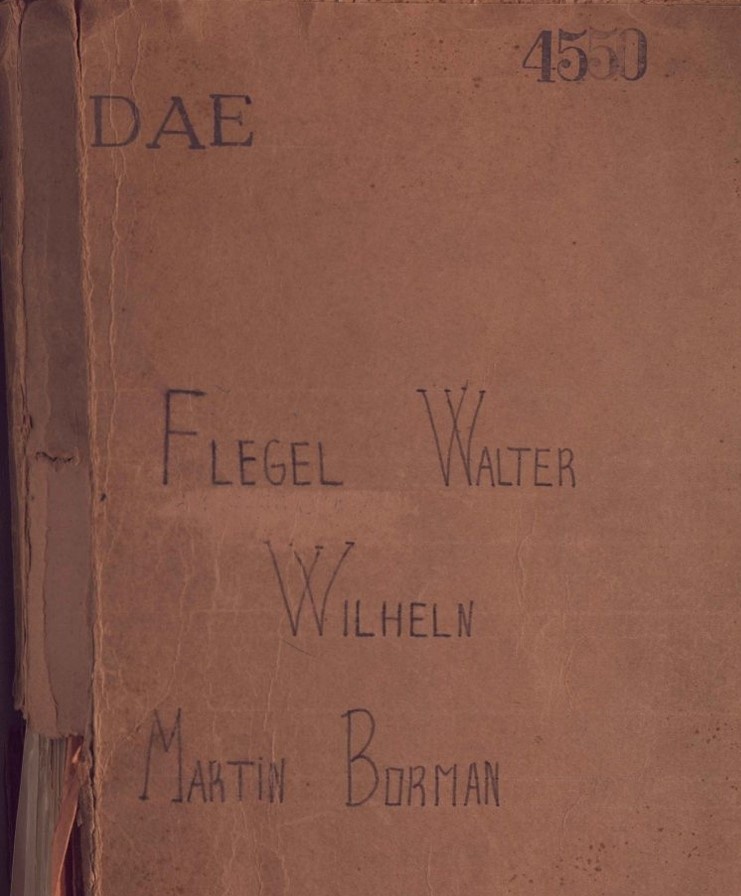 4550
DAE
FLEGEL WALTER
WILHELN
MARTiN BORMAN